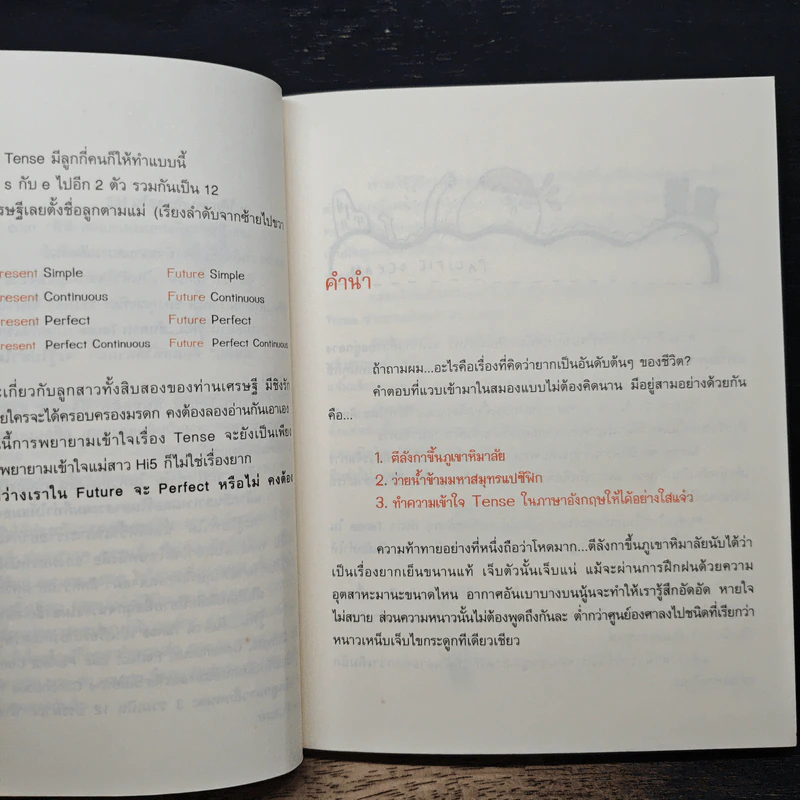 Tense มีลูกกี่คนก็ให้ทำแบบนี้
s กับ e ไปอีก 2 ตัว รวมกันเป็น 12
เลยตั้งชื่อลูกตามแม่ (เรียงลำดับจากซ้ายไปขวา
resent Simple Future Simple
resent Continuous Future Continuous
resent Perfect Future Perfect
resent Perfect Continuous Future Perfect Continuous
เกี่ยวกับลูกสาวทั้งสิบสองของท่านเศรษฐี มีชิงรัก
ใครจะได้ครอบครองมรดก คงต้องลองอ่านกันเอาเอง
นี้การพยายามเข้าใจเรื่อง Tense จะยังเป็นเพียง
พยายามเข้าใจแม่สาว Hi5 ก็ไม่ใช่เรื่องยาก
ว่างเราใน Future จะ Perfect หรือไม่ คงต้อง
คำนำ
ถ้าถามผม...อะไรคือเรื่องที่คิดว่ายากเป็นอันดับต้นๆ ของชีวิต?
คำตอบที่แวบเข้ามาในสมองแบบไม่ต้องคิดนาน มีอยู่สามอย่างด้วยกัน
คือ...
1. ตีลังกาขึ้นภูเขาหิมาลัย
2. ว่ายน้ำข้ามมหาสมุทรแปซิฟิก
3. ทำความเข้าใจ Tense ในภาษาอังกฤษให้ได้อย่างใสแจ๋ว
ความท้าทายอย่างที่หนึ่งถือว่าโหดมาก...ตีลังกาขึ้นภูเขาหิมาลัยนับได้ว่า
เป็นเรื่องยากเย็นขนานแท้ เจ็บตัวนั้นเจ็บแน่ แม้จะผ่านการฝึกฝนด้วยความ
อุตสาหะมานะขนาดไหน อากาศอันเบาบางบนนู้นจะทำให้เรารู้สึกอัดอัด หายใจ
ไม่สบาย ส่วนความหนาวนั้นไม่ต้องพูดถึงกันละ ต่ำกว่าศูนย์องศาลงไปชนิดที่เรียกว่า
หนาวเหน็บเจ็บไขกระดูกทีเดียวเชียว